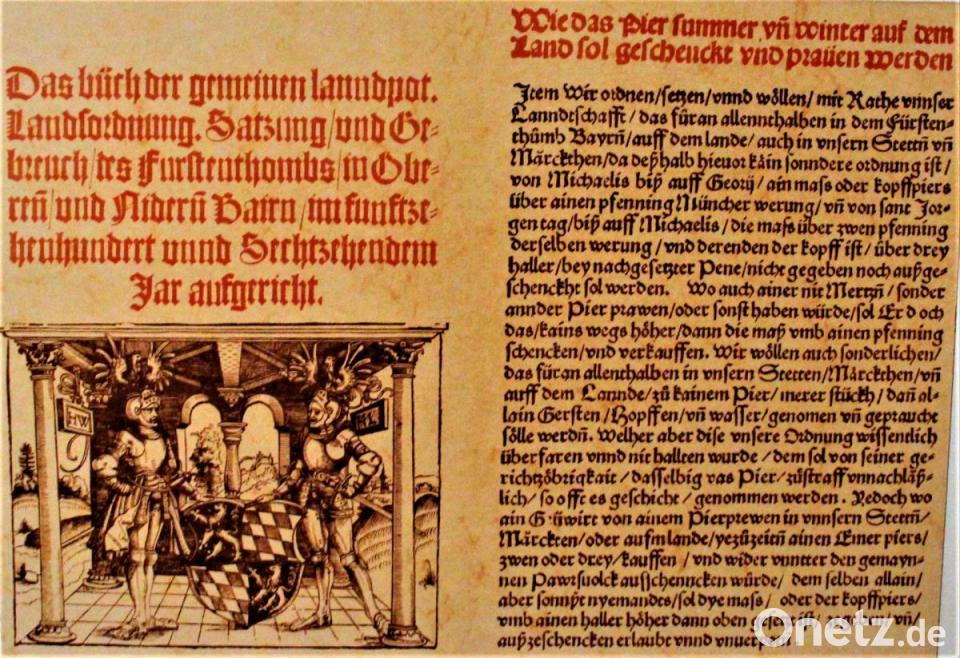 Das büch der gemeinen lanndpot.
Landsordnung. Satzung/vnd Ge-
breuch/des Furstenthombs/in Obe-
ren̄/vnd Nidern̄ Bairn/im funftze-
henhundert vnnd Sechtzehendem
Jar aufgericht.
HW
HL
Wie das Pier summer vn̄ winter auf dem
Land sol geschenckt vnd praüen werden
Item Wir ordnen/setzen/vnnd wöllen/mit Rathe vnnser
Lanndtschafft/das für an allennthalben in dem Fürsten-
thůmb Bayrn̄/auff dem lande/auch in vnsern Stettn̄ vn̄
Märckthen/da deßhalb hieuor kain sonndere ordnung ist/
von Michaelis biß auff Georij/ain mass oder kopffpiers
über ainen pfenning Müncher werung/vn̄ von sant Jor-
gen tag/biß auff Michaelis/die mass über zwen pfenning
derselben werung/vnd derenden der kopff ist/über drey
haller/bey nachgesetzter Pene/nicht gegeben noch außge-
schenckht sol werden. Wo auch ainer nit Mertzn̄/sonder
annder Pier prawen/oder sonst haben würde/sol Er doch
das/kains wegs höher/dann die maß vmb ainen pfenning
schencken/vnd verkauffen. Wir wöllen auch sonderlichen/
das für an allenthalben in vnsern Stetten/Märckthen/vn̄
auff dem Lannde/zů kainem Pier/merer stückh/dan̄ al-
lain Gersten/Hopffen/vn̄ wasser/genomen vn̄ gepraucht
sölle werdn̄. Welher aber dise vnsere Ordnung wissendlich
überfaren vnnd nit hallten wurde/dem sol von seiner ge-
richtzöbrigkait/dasselbig vas Pier/zůstraff vnnachläß-
lich/so offt es geschicht/genommen werden. Yedoch wo
ain Güwirt von ainem Pierprewen in vnnsern Stettn̄/
Märckten/oder aufm lande/yezůzeitn̄ ainen Emer piers/
zwen oder drey/kauffen/vnd wider vnntter den gemayn-
nen Pawrsuolck ausschenncken würde/dem selben allain/
aber sonnst nyemandts/sol dye mass/oder der kopffpiers/
vmb ainen haller höher dann oben
außzeschencken erlaubt vnnd
Onetz.de